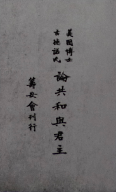 美國博士
古德諾氏
論共和與君主
籌安會刊行